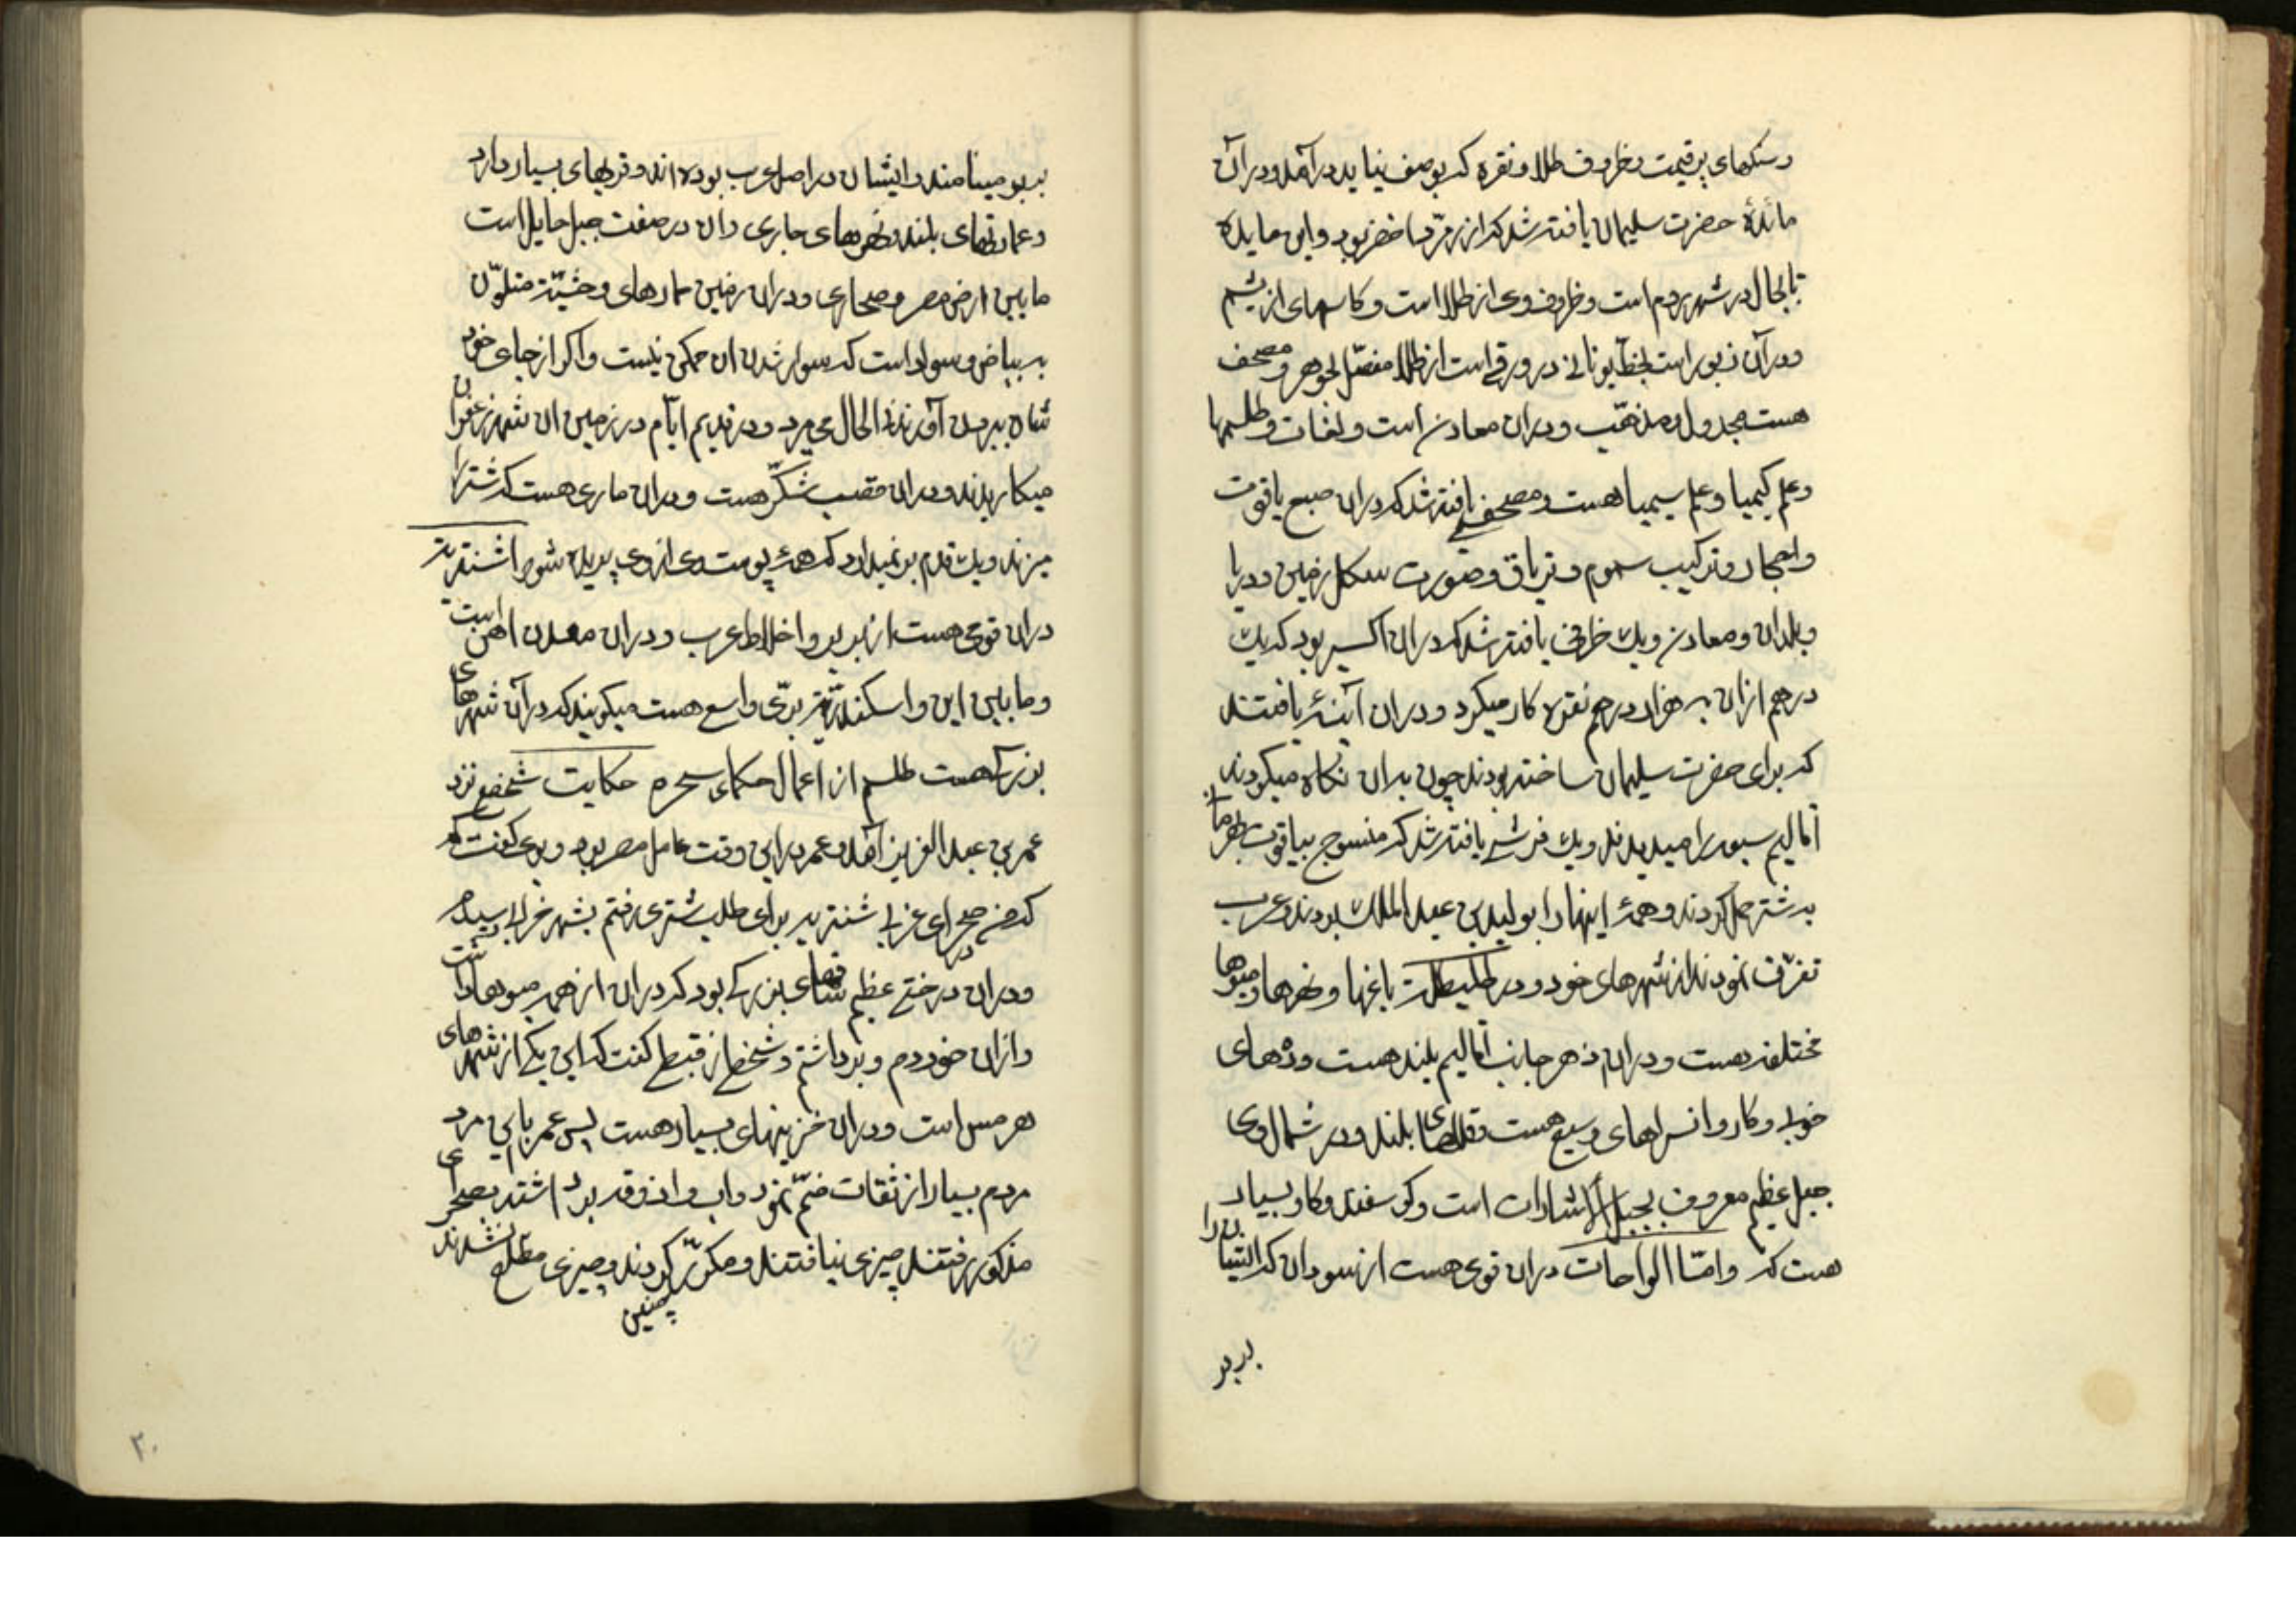 وسنکهای پرقیمت وظروف طلا ونقره که بوصف نیاید در آمد ودر آن
مائدۀ حضرت سلیمان یافته شد که از زمرّد اخضر بود واین مایده
تابحال در شهر روم است وظروف وی از طلا است وکاسهای از یشم
ودر آن زبور است بخط یونانی در ورقی است از طلا مفصّل بجوهر ومصحف
هست مجدول ومذهّب ودران معادن است ولغات وطلسمها
وعلم کیمیا وعلم سیمیا هست ومصحفی یافته شد که دران صبغ یاقوت
واحجار وترکیب سموم وتریاق وصورت شکل زمین ودریا
وبلدان ومعادن ویک ظرفی یافته شد که دران اکسیر بود که یک
درهم ازان به هزار درهم نقره کار میکرد ودران آینۀ یافتند
که برای حضرت سلیمان ساخته بودند چون بدان نکاه میکردند
اقالیم سبعه را میدیدند ویک فرشی یافته شد که منسوج بیاقوت بهرمان
به شتر حمل کردند وهمۀ اینها را بولید بن عبد الملک بردند وعرب
تفرّق نمودند از شهرهای خود ودر طلیطله باغها ونهرها ومیوها
مختلفه هست ودران از هر جانب اقالیم بلند هست ودههای
خوب وکاروانسراهای وسیع هست وقلعهای بلند ودر شمال وی
جبل عظیم معروف بجبل الشارات است وکوسفند وکاو بسیار
هست که وامّا الواحات دران قومی هست از سودان که ایشان را
بربر
بربر مینامند وایشان در اصل عرب بوده اند وقریهای بسیار دارد
وعمارتهای بلند ونهرهای جاری وان در صفت جبل حایل است
مابین ارض مصر وصحاری ودران زمین حمارهای وحشیّه متلوّن
به بیاض وسواد است که سوار شدن ان ممکن نیست واکر از جای خود
شان بیرون آورند فی الحال می میرد ودر قدیم ایّام در زمین ان شهر زعفران
میکاریدند ودران قصب شکّر هست ودران ماری هست که شتر را
میزند ویک قدم بر نمیدارد که همۀ پوست وی از وی پریده شود اشنتریه
دران قومی هست از بربر واخلاط عرب ودران معدن اهن است
ومابین این واسکندریّه برّی واسع هست میکویند که در آن شهرهای
بزرک هست طلسم از اعمال حکماء سحره حکایت شخصی نزد
عمر بن عبد العزیز آمد وعمر در این وقت عامل مصر بود وبوی کفت که
که من در صحرای غربی شنتریه برای طلب شتری رفتم بشهر خرابی رسیدم
ودران درختی عظیم شاخهای بزرک بود که دران از همه میوها داشت
وازان خوردم وبرداشتم وشخصی از قبط کفت که این یکی از شهرهای
هرمس است ودران خزینهای بسیار هست پس عمر با این مرد
مردم بسیار از ثقات ضمّ نمود واب واذوقه برداشته بصحرای
مذکور رفتند چیزی نیافتند ومکرّر کردند وچیزی مطّلع نشدند
چنین
۳۰